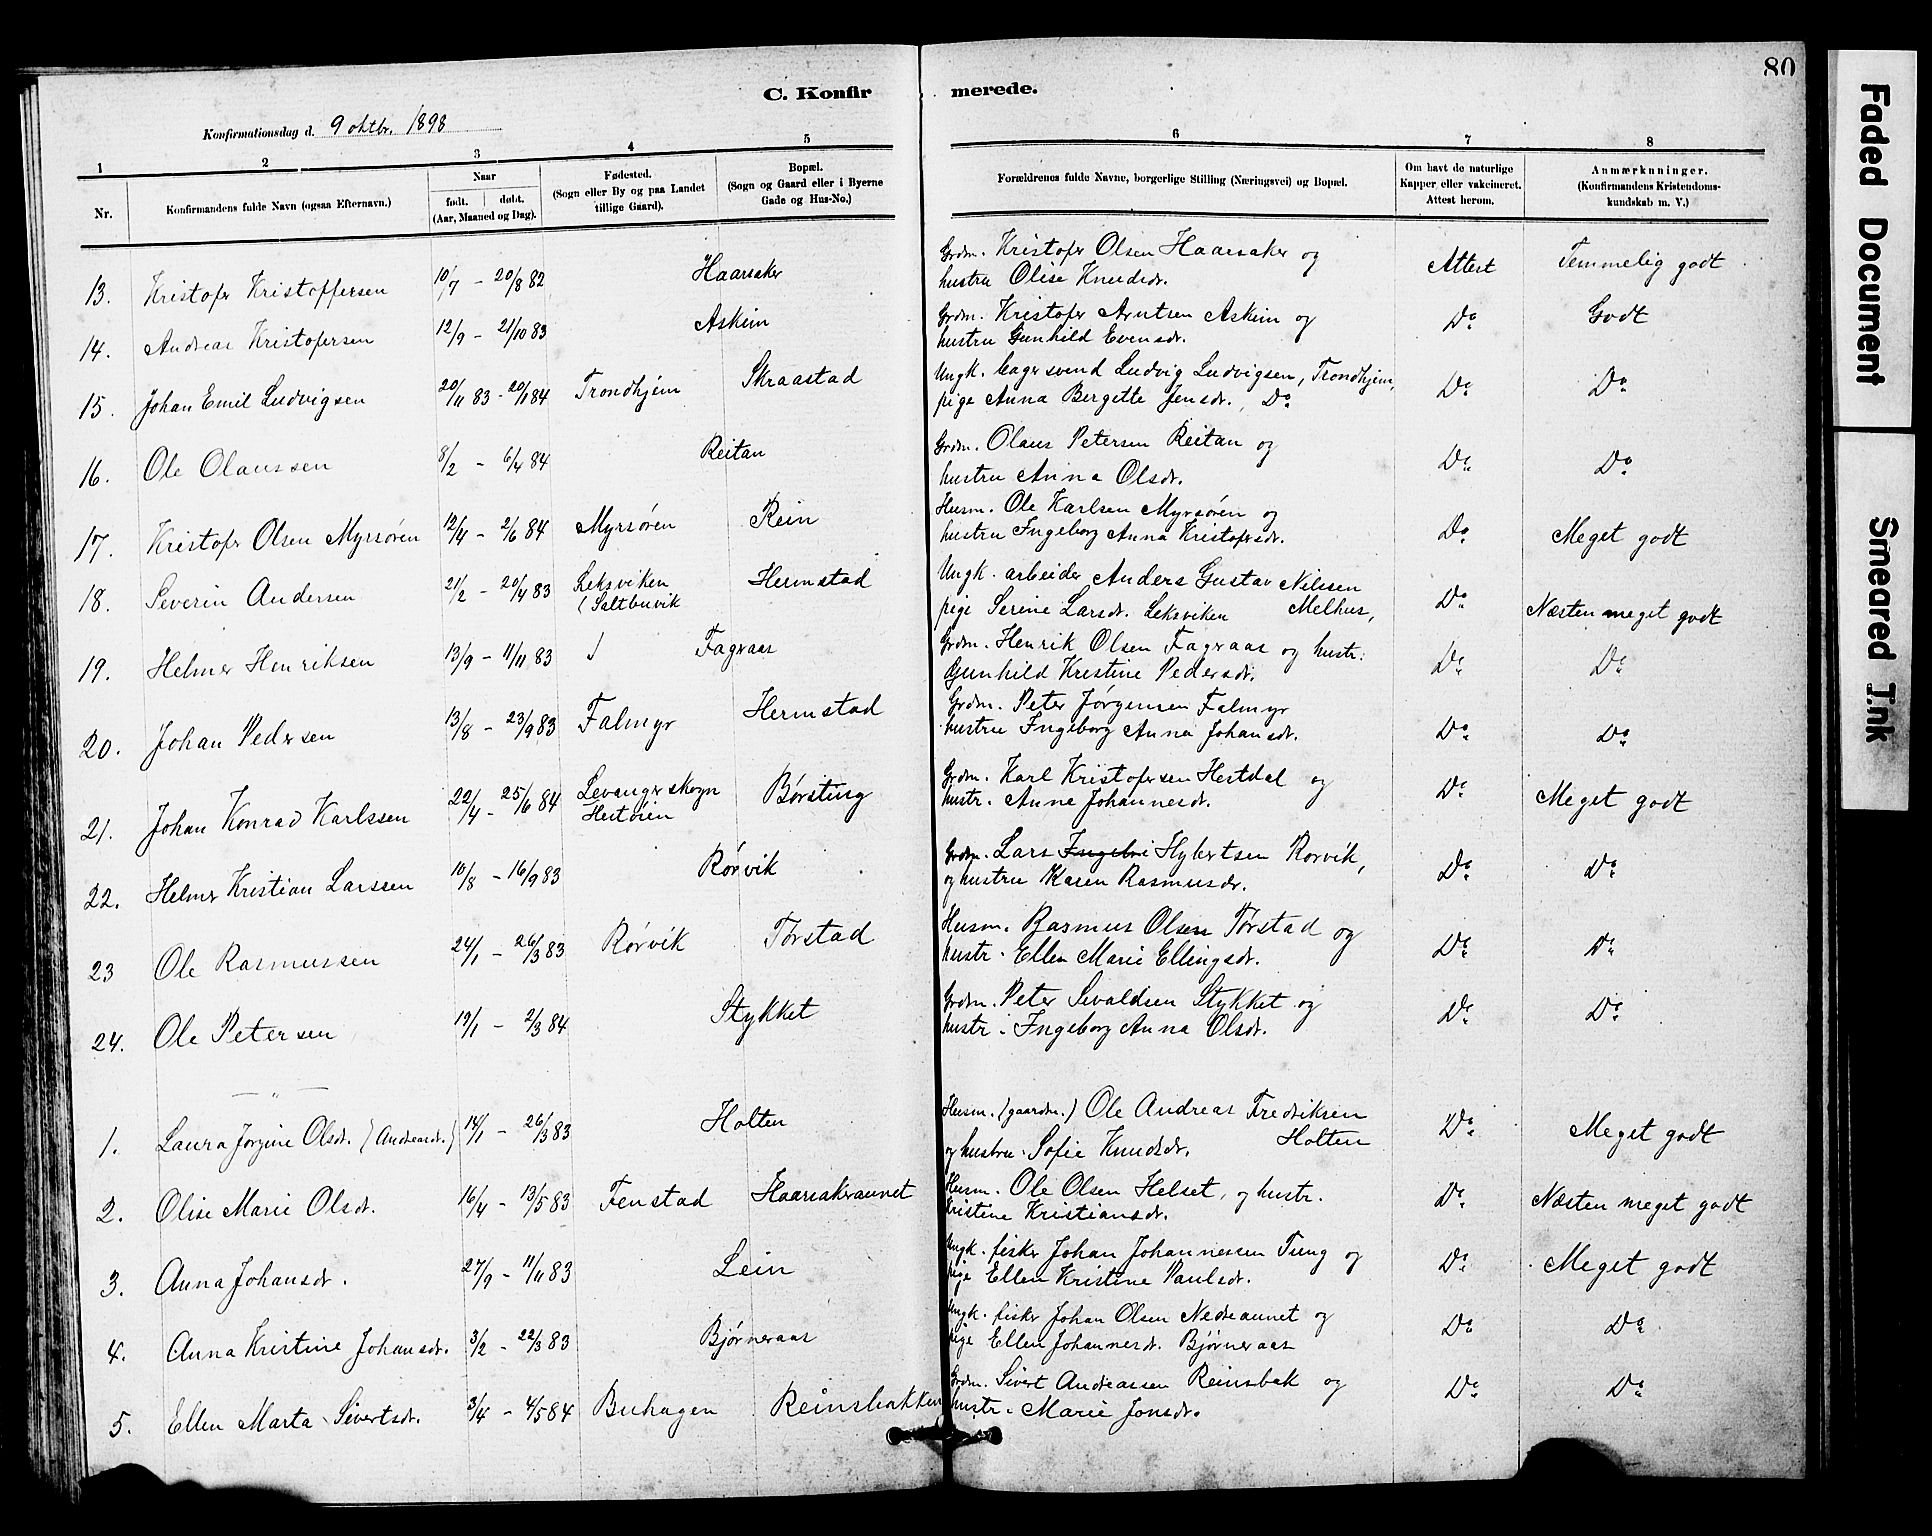 80
C. Konfirmerede.
Konfirmationsdag d. 9 oktbr. 1898
1 2 3 4 5 6 7 8
Nr.
Konfirmandens fulde Navn (ogsaa Efternavn.)
Naar
født. døbt.
(Aar, Maaned og Dag).
Fødested.
(Sogn eller By og paa Landet
tillige Gaard).
Bopæl.
(Sogn og Gaard eller i Byerne
Gade og Hus-No.)
Forældrenes fulde Navne, borgerlige Stilling (Næringsvei) og Bopæl.
Om havt de naturlige
Kopper eller vakcineret.
Attest herom.
Anmærkninger.
(Konfirmandens Kristendoms-
kundskab m. V.)
13. Kristofer Kristoffersen 10/7 - 20/8 82 Haarsaker Grdm. Kristofer Olsen Haarsaker og Attest Temmelig godt
hustru Olise Knudsdr.
14. Andreas Kristofersen 12/9 - 21/10 83 Askeim Grdm. Kristofer Arntsen Askeim og Do Godt
hustru Gunhild Evensdr.
15. Johan Emil Ludvigsen 20/11 83 - 20/1 84 Trondhjem Skraastad Ungk. bagersvend Ludvig Ludvigsen, Trondhjem, Do Do
pige Anna Bergette Jensdr., Do
16. Ole Olaussen 8/2 - 6/4 84 Reitan Grdm. Olaus Petersen Reitan og Do Do
hustru Anna Olsdr.
17. Kristofer Olsen Myrsören 12/4 - 2/6 84 Myrsören Rein Husm. Ole Karlsen Myrsören og Do Meget godt
hustru Ingeborg Anna Kristofersdr.
18. Severin Andersen 21/2 - 20/4 83 Leksviken Hermstad Ungk. arbeider Anders Gustav Nilssen Do Næsten meget godt
(Saltbuvik pige Serine Larsdr. Leksviken Melhus,
19. Helmer Henriksen 13/9 - 11/11 83 Fagraas Grdm. Henrik Olsen Fagraas og hustr: Do Do
Gunhild Kristine Pedersdr.
20. Johan Pedersen 13/8 - 23/9 83 Falmyr Hermstad Grdm. Peter Jørgensen Falmyr Do Do
hustru Ingeborg Anna Johansdr.
21. Johan Konrad Karlssen 22/4 - 25/6 84 Levanger skogn Børsting Grdm. Karl Kristofersen Hestdal og Do Meget godt
Hestöien hustr. Anne Johannesdr.
22. Helmer Kristian Larssen 10/8 - 16/9 83 Rörvik Grdm. Lars Hybertsen Rorvik, Do Do
og hustru Karen Rasmusdr.
23 Ole Rasmussen 24/1 - 26/3 83 Rörvik Tørstad Husm. Rasmus Olsen Tørstad og Do Do
hustr. Ellen Marie Ellingsdr.
24. Ole Petersen 19/1 - 2/3 84 Stykket Grdm. Peter Sivaldsen Stykket og Do Do
hustr. Ingeborg Anna Olsdr.
— " —
1. Laura Jorgine Olsdr. (Andreasdr.) 14/1 - 26/3 83 Holten Husm. (gaardm.) Ole Andreas Fredriksen Do Meget godt
og hustru. Sofie Knudsdr. Holten
2. Olise Marie Olsdr. 16/4 - 13/5 83 Fenstad Haarsakeraunet Husm. Ole Olsen Helset, og hustr. Do Næsten meget godt
Kristine Kristiansdr.
3. Anna Johansdr. 27/9 - 11/11 83 Lein Ungk. fisker Johan Johannessen Tung og Do Meget godt
pige Ellen Kristine Paulsdr.
4. Anna Kristine Johansdr. 3/2 - 22/3 83 Bjørneraas Ungk. fisker Johan Olsen Nedreaunet og Do Do
pige Ellen Johannesdr. Bjørneraas
5. Ellen Marta Sivertsdr. 3/4 - 4/5 84 Buhagen Reinsbakken Grdm. Sivert Andreassen Reinsbak og Do Do
hustr. Marie Jonsdr.
Faded Document
Smeared Ink